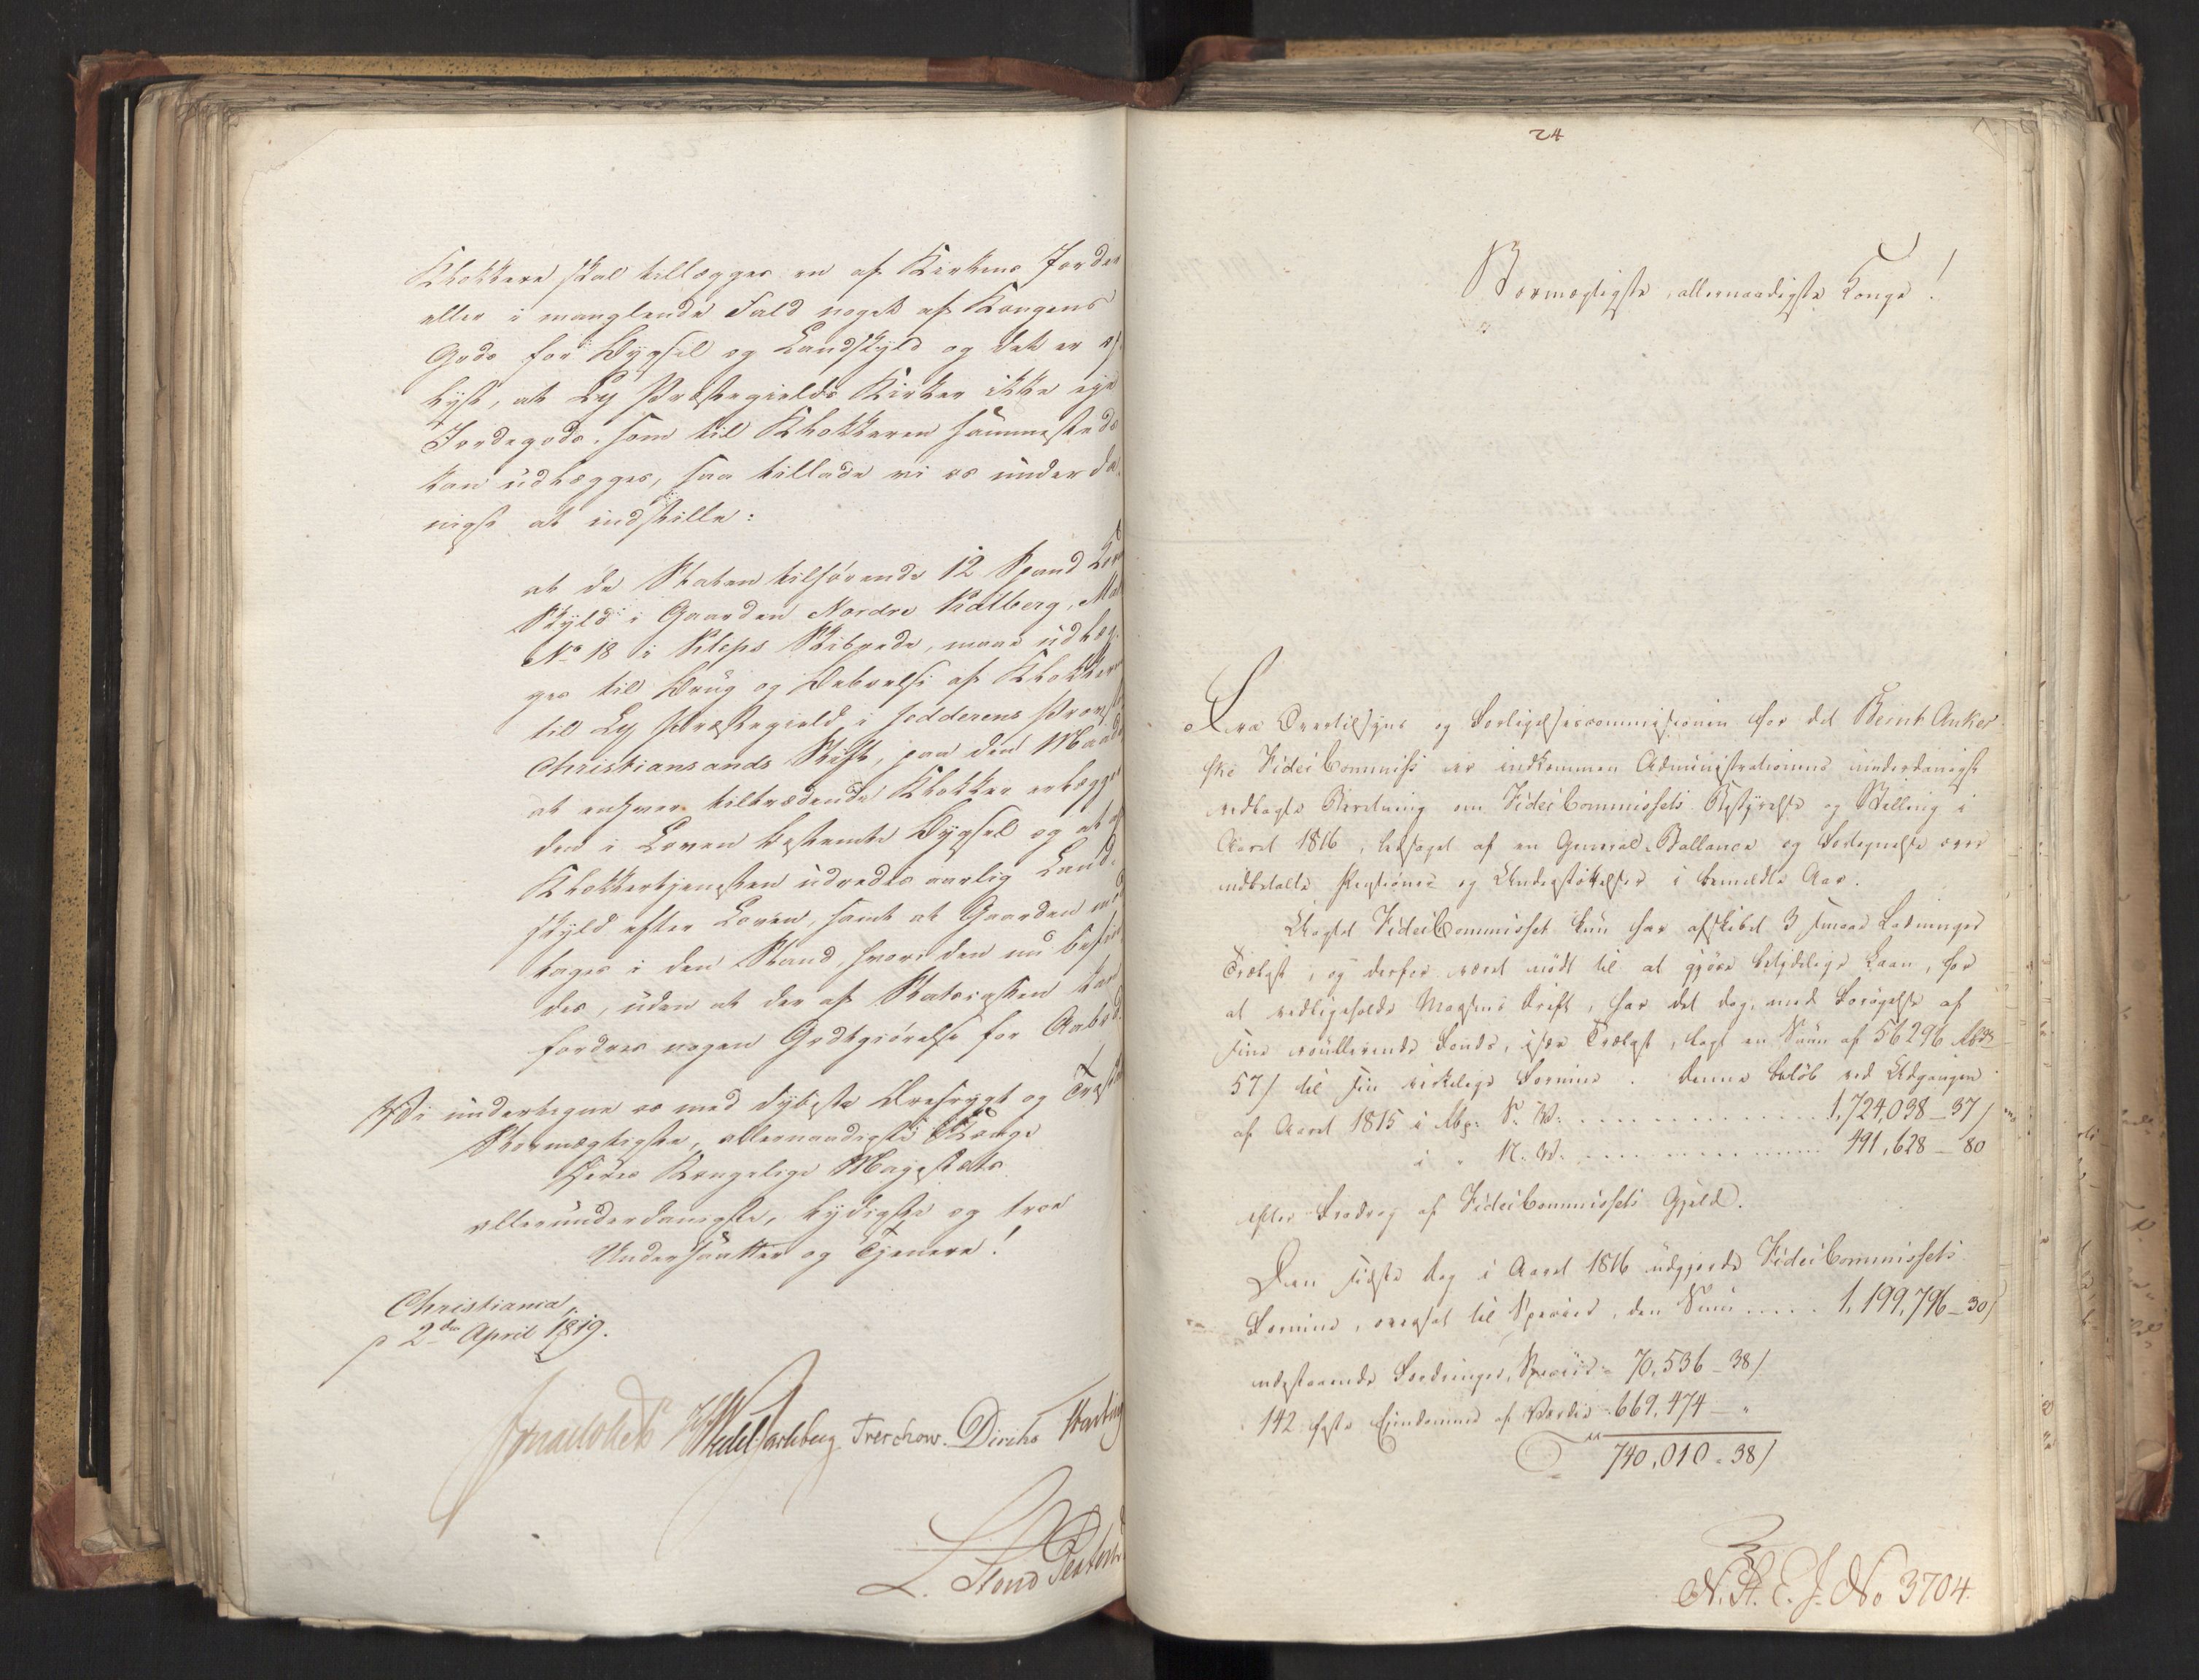 Klokkere skal tillægges en af Kirkens Jorder
eller i manglende Fald noget af Kongens
Gods for Bygsel og Landskyld og det er op-
lyst, at Ly Præstegields Kirker ikke eye
Jordegods, som til Klokkeren sammesteds
kan udlægges, saa tillade vi os underda-
nigst at indstille:
at de Staten tilhørende 12 Spand Land
Skyld i Gaarden Nordre Kalberg, Mat
No 18 i Kleps Skibrede, maae udlæg-
ges til Brug og Beboelse af Klokkeren
til Ly Præstegield i Jedderens Provstie
Christiansands Stift, paa den Maade
at enhver tiltrædende Klokker erlægger
den i Loven bestemte Bygsel og at af
Klokkertjenesten udredes aarlig Land-
skyld efter Loven, samt at Gaarden mod-
tages i den Stand, hvori den nu befin-
des, uden at der af Statscassen kan
fordres nogen Godtgiørelse for Aabod.
Vi undertegne os med dybeste Ærefrygt og Troskab
Stormægtigste, allernaadigste Konge
Deres Kongelige Majestæts
allerunderdanigste, lydigste og troe
Undersaatter og Tjenere!
Christiania
p 2den April 1819.
Wedel Jarlsberg Treschow. Diriks
L.
24
Stormægtigste, allernaadigste Konge!
Fra Overtilsyns og Forligelsescommissionen for det Bernt Anker
ske FideiCommiss er indkommen Administrationens underdanigst
vedlagte Beretning om FideiCommissets Bestyrelse og Stilling i
Aaret 1816, ledsaget af en General-Ballance og Fortegnelse over
udbetalte Pensioner og Understøttelser i bemeldte Aar.
Uagtet FideiCommisset kun har afskibet 3 smaae Ladninger
Trælast, og derfor været nødt til at gjøre betydelige Laan, for
at vedligeholde Massens Drift, har det dog, med Forøgelse af
sine roullerende Fonds, især Trælast, lagt en Sum af 56296 Rbd
57 s til sin virkelige Formue. Denne beløb ved Udgangen
af Aaret 1815 i Rbd. S. V. . . . . . . . . 1,724,038 – 37 s
i " N. V. . . . . . . . . 491,628 – 80
efter Fradrag af FideiCommissets Gjeld.
Den sidste Dag i Aaret 1816 udgjorde FideiCommissets
Formue, overført til Species, den Sum . . . . . 1,199,796 – 30 s
udestaaende Fordringer, Species 70,536 – 38 s
142 faste Eiendomme af Værdie 669,474 – "
740,010 – 38 s
N. R. C. J. No 3704.